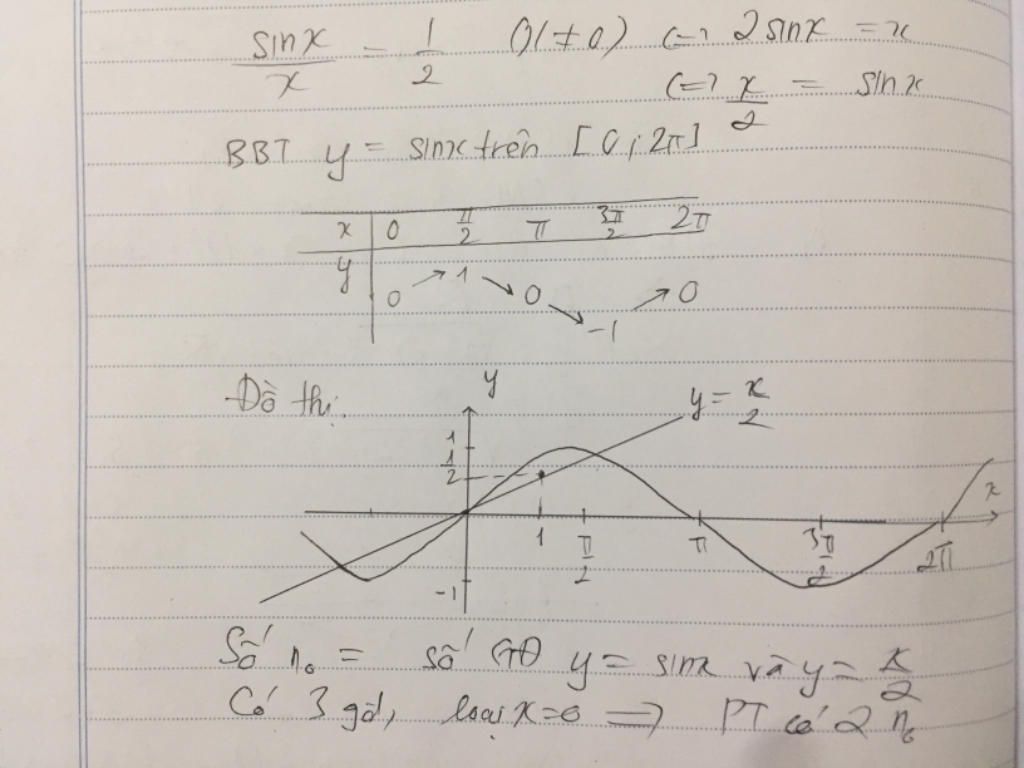 sinx/x = 1/2 (x ≠ 0) <=> 2sinx = x
<=> x/2 = sinx
BBT y = sinx trên [0; 2π]
x 0 π/2 π 3π/2 2π
y 0 ↗ 1 ↘ 0 ↘ -1 ↗ 0
Đồ thị. y y = x/2
1
1/2
x
1 π/2 π 3π/2 2π
-1
Số n₀ = số GĐ y = sinx và y = x/2
Có 3 gđ, loại x=0 → PT có 2 n₀